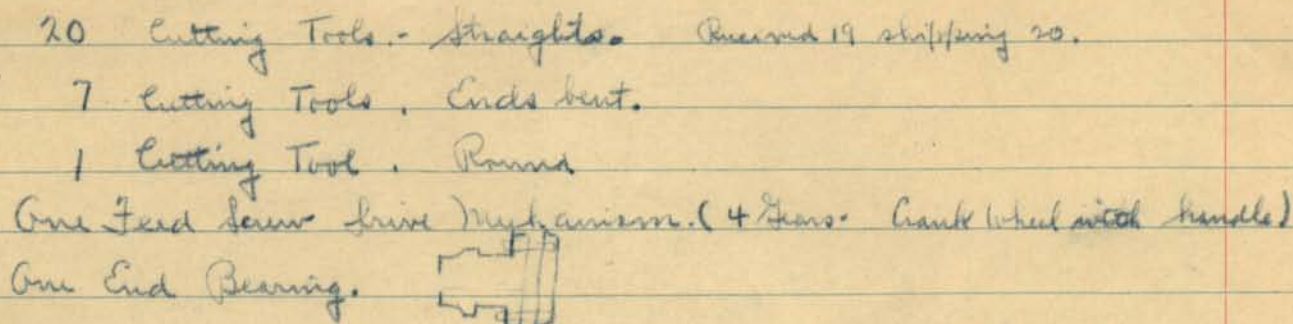 20 Cutting Tools.- Straights. Received 19 shipping 20.
7 Cutting Tools. Ends bent.
1 Cutting Tool. Round
One Feed Screw Drive Mechanism. (4 Gears. Crank wheel with handle)
One End Bearing.